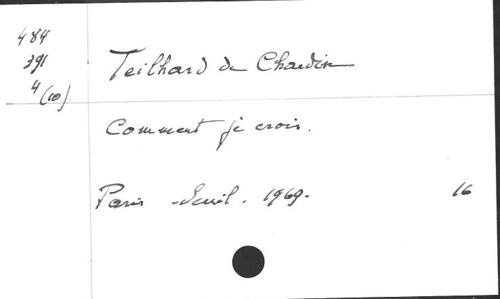 484
391
4 (10).
Teilhard de Chardin
Comment je crois.
Paris - Seuil. 1969.
16